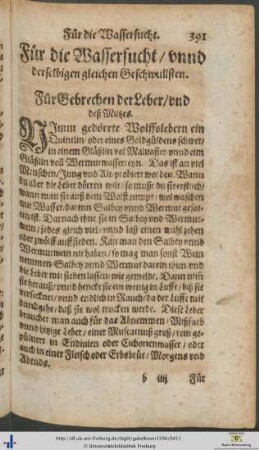 Für die Wassersucht. 391
Für die Wassersucht / vnnd
derselbigen gleichen Geschwulsten.
Für Gebrechen der Leber / vnd
deß Miltzes.
NJmm gedörrte Wolffslebern ein
Quintlin / oder eines Goldgüldens schwer /
in einem Gläßlin vol Maluasier vnnd ein
Gläßlin voll Wermutwasser / eyn. Das ist an viel
Menschen / Jung vnd Alt probiert worden. Wann
du aber die Leber dörren wilt / so mustu du sie erstlich /
wann man sie auß dem Wolff nimpt / wol waschen
mit Wasser darinn Salbey vnnd Wermut gesot-
ten ist. Darnach thue sie in Salbey vnd Wermut-
wein / jedes gleich viel / vnnd laß einen wahl zehen
oder zwölff auffsieden. Kan man den Salbey vnnd
Wermutwein nit haben / so mag man sonst Wein
nemmen / Salbey vnnd Wermut darein thun / vnd
die Leber mit sieden lassen / wie gemelt. Dann nim̃
sie herauß / vnnd hencke sie ein wenig in Lufft / biß sie
verseckner / vnnd endlich in Rauch / da der Lufft mit
durchgehe / daß sie wol trucken werde. Diese Leber
brauchet man auch für das Abnemmen / Mißfarb
vnnd hitzige Leber / einer Muscatnuß groß / rein ge-
pülvert in Endivien oder Cichorienwasser / oder
auch in einer Fleisch oder Erbsbrüe / Morgens vnd
Abends.
b iiij Für
http://dl.ub.uni-freiburg.de/diglit/gabelkover1594/0411
© Universitätsbibliothek Freiburg